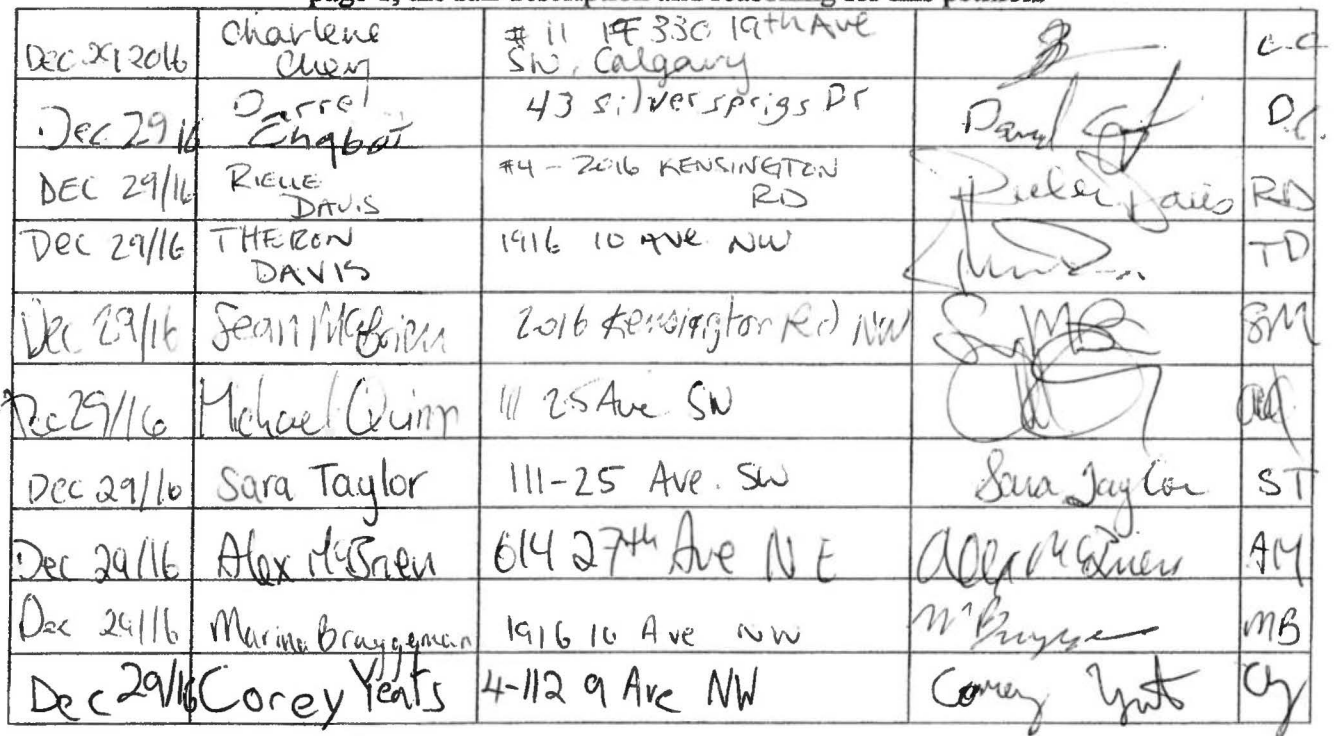 page 1, the full description and reasoning for this petition.
Dec 29 2016 Charlene Chen # 11 330 19th Ave SW, Calgary C.C
Dec 29 16 Darrel Chabot 43 silversprigs Dr D.C.
DEC 29/16 RIELLE DAVIS #4 - 2016 KENSINGTON RD Davis RD
Dec 29/16 THERON DAVIS 1916 10 AVE NW TD
Dec 29/16 Sean McBrien 2016 Kensington Rd NW SM
Dec 29/16 Michael Quinn 111 25 Ave SW
Dec 29/16 Sara Taylor 111-25 Ave. SW Sara Taylor ST
Dec 29/16 Alex McBrien 614 27th Ave NE Alex McBrien AM
Dec 29/16 Marina Bruggeman 1916 10 Ave NW MB
Dec 29/16 Corey Yeats 4-112 9 Ave NW Corey Yeats CY